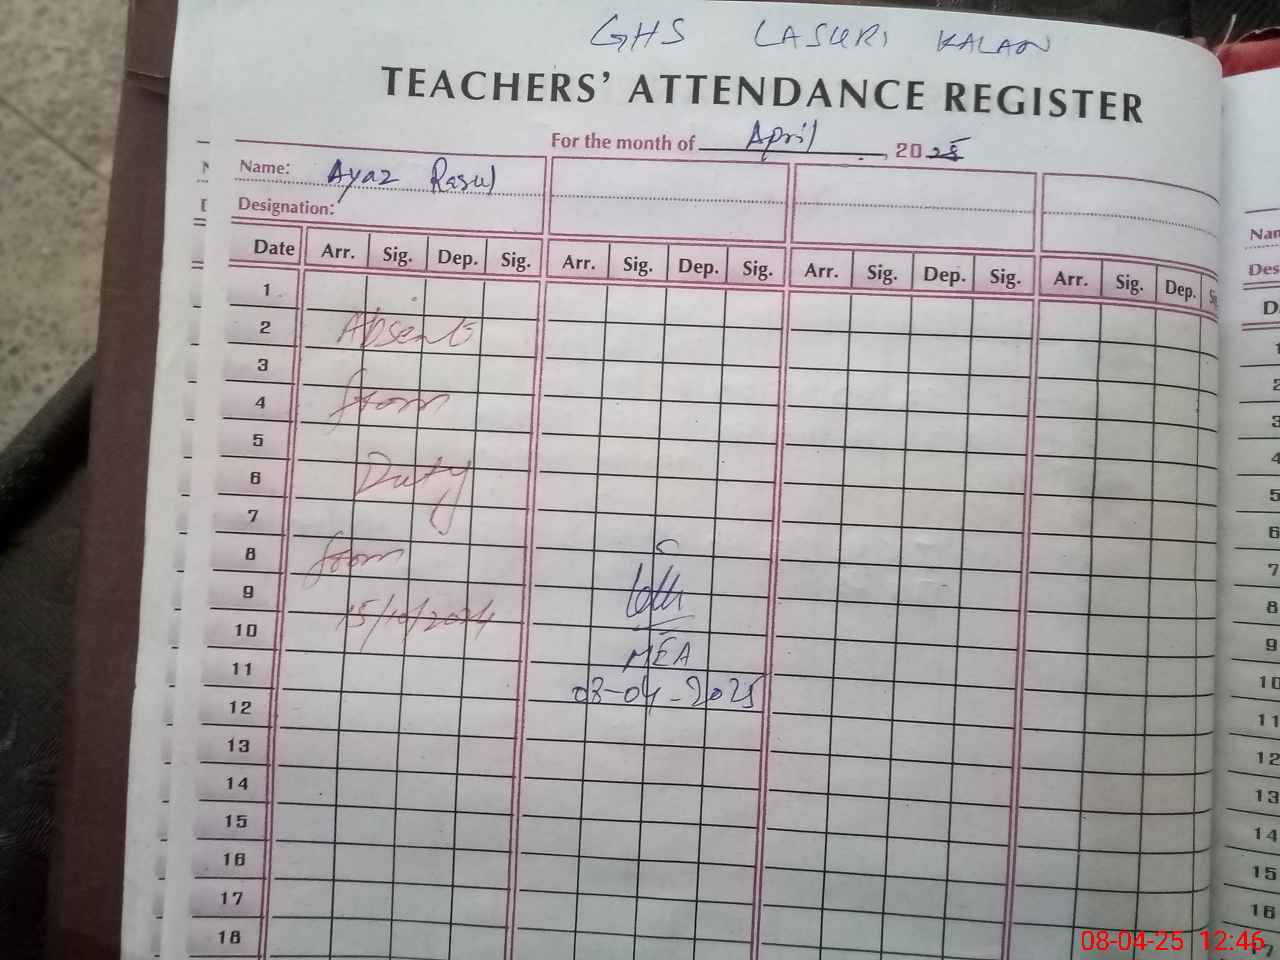 GHS LASURI KALAN
TEACHERS' ATTENDANCE REGISTER
For the month of April, 2025
Name: Ayaz Rasul
Designation:
Date Arr. Sig. Dep. Sig. Arr. Sig. Dep. Sig. Arr. Sig. Dep. Sig. Arr. Sig. Dep.
1
2 Absent
3
4 from
5
6 Duty
7
8 from
9
10 15/10/2024
11 MEA
12 08-04-2025
13
14
15
16
17
18
Nam
Des
D
1
2
3
4
5
6
7
8
9
10
11
12
13
14
15
16
17
08-04-25 12:46